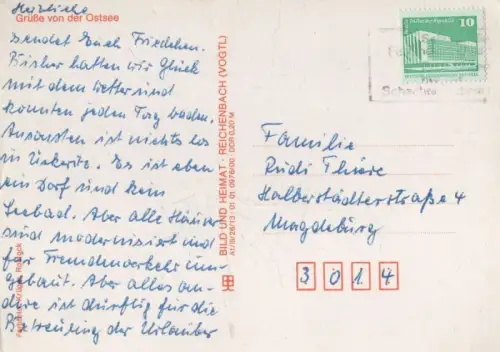 Herzliche
Grüße von der Ostsee
sendet Euch Friedchen.
Bisher hatten wir Glück
mit dem Wetter und
konnten jeden Tag baden.
Ansonsten ist nichts los
in Ückeritz. Es ist eben
ein Dorf und kein
Seebad. Aber alle Häuser
sind modernisiert und
für Fremdenverkehr um-
gebaut. Aber alles an-
dere ist dürftig für die
Betreuung der Urlauber
BILD UND HEIMAT · REICHENBACH (VOGTL)
A1/B/28/13 01 01 0978/00 DDR 0,20 M
10
Familie
Rudi Thiere
Halberstädterstraße 4
Magdeburg
3 0 1 4